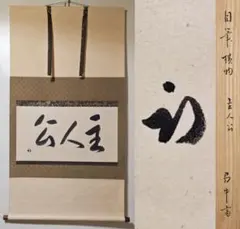 主人公
自筆 横物 主人公